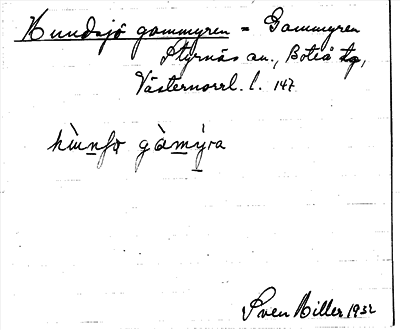 Hundsjö gammyren = Gammyren
Styrnäs sn., Boteå tg,
Västernorrl. l. 147
hùnfo gàmýra
Sven Miller 1932